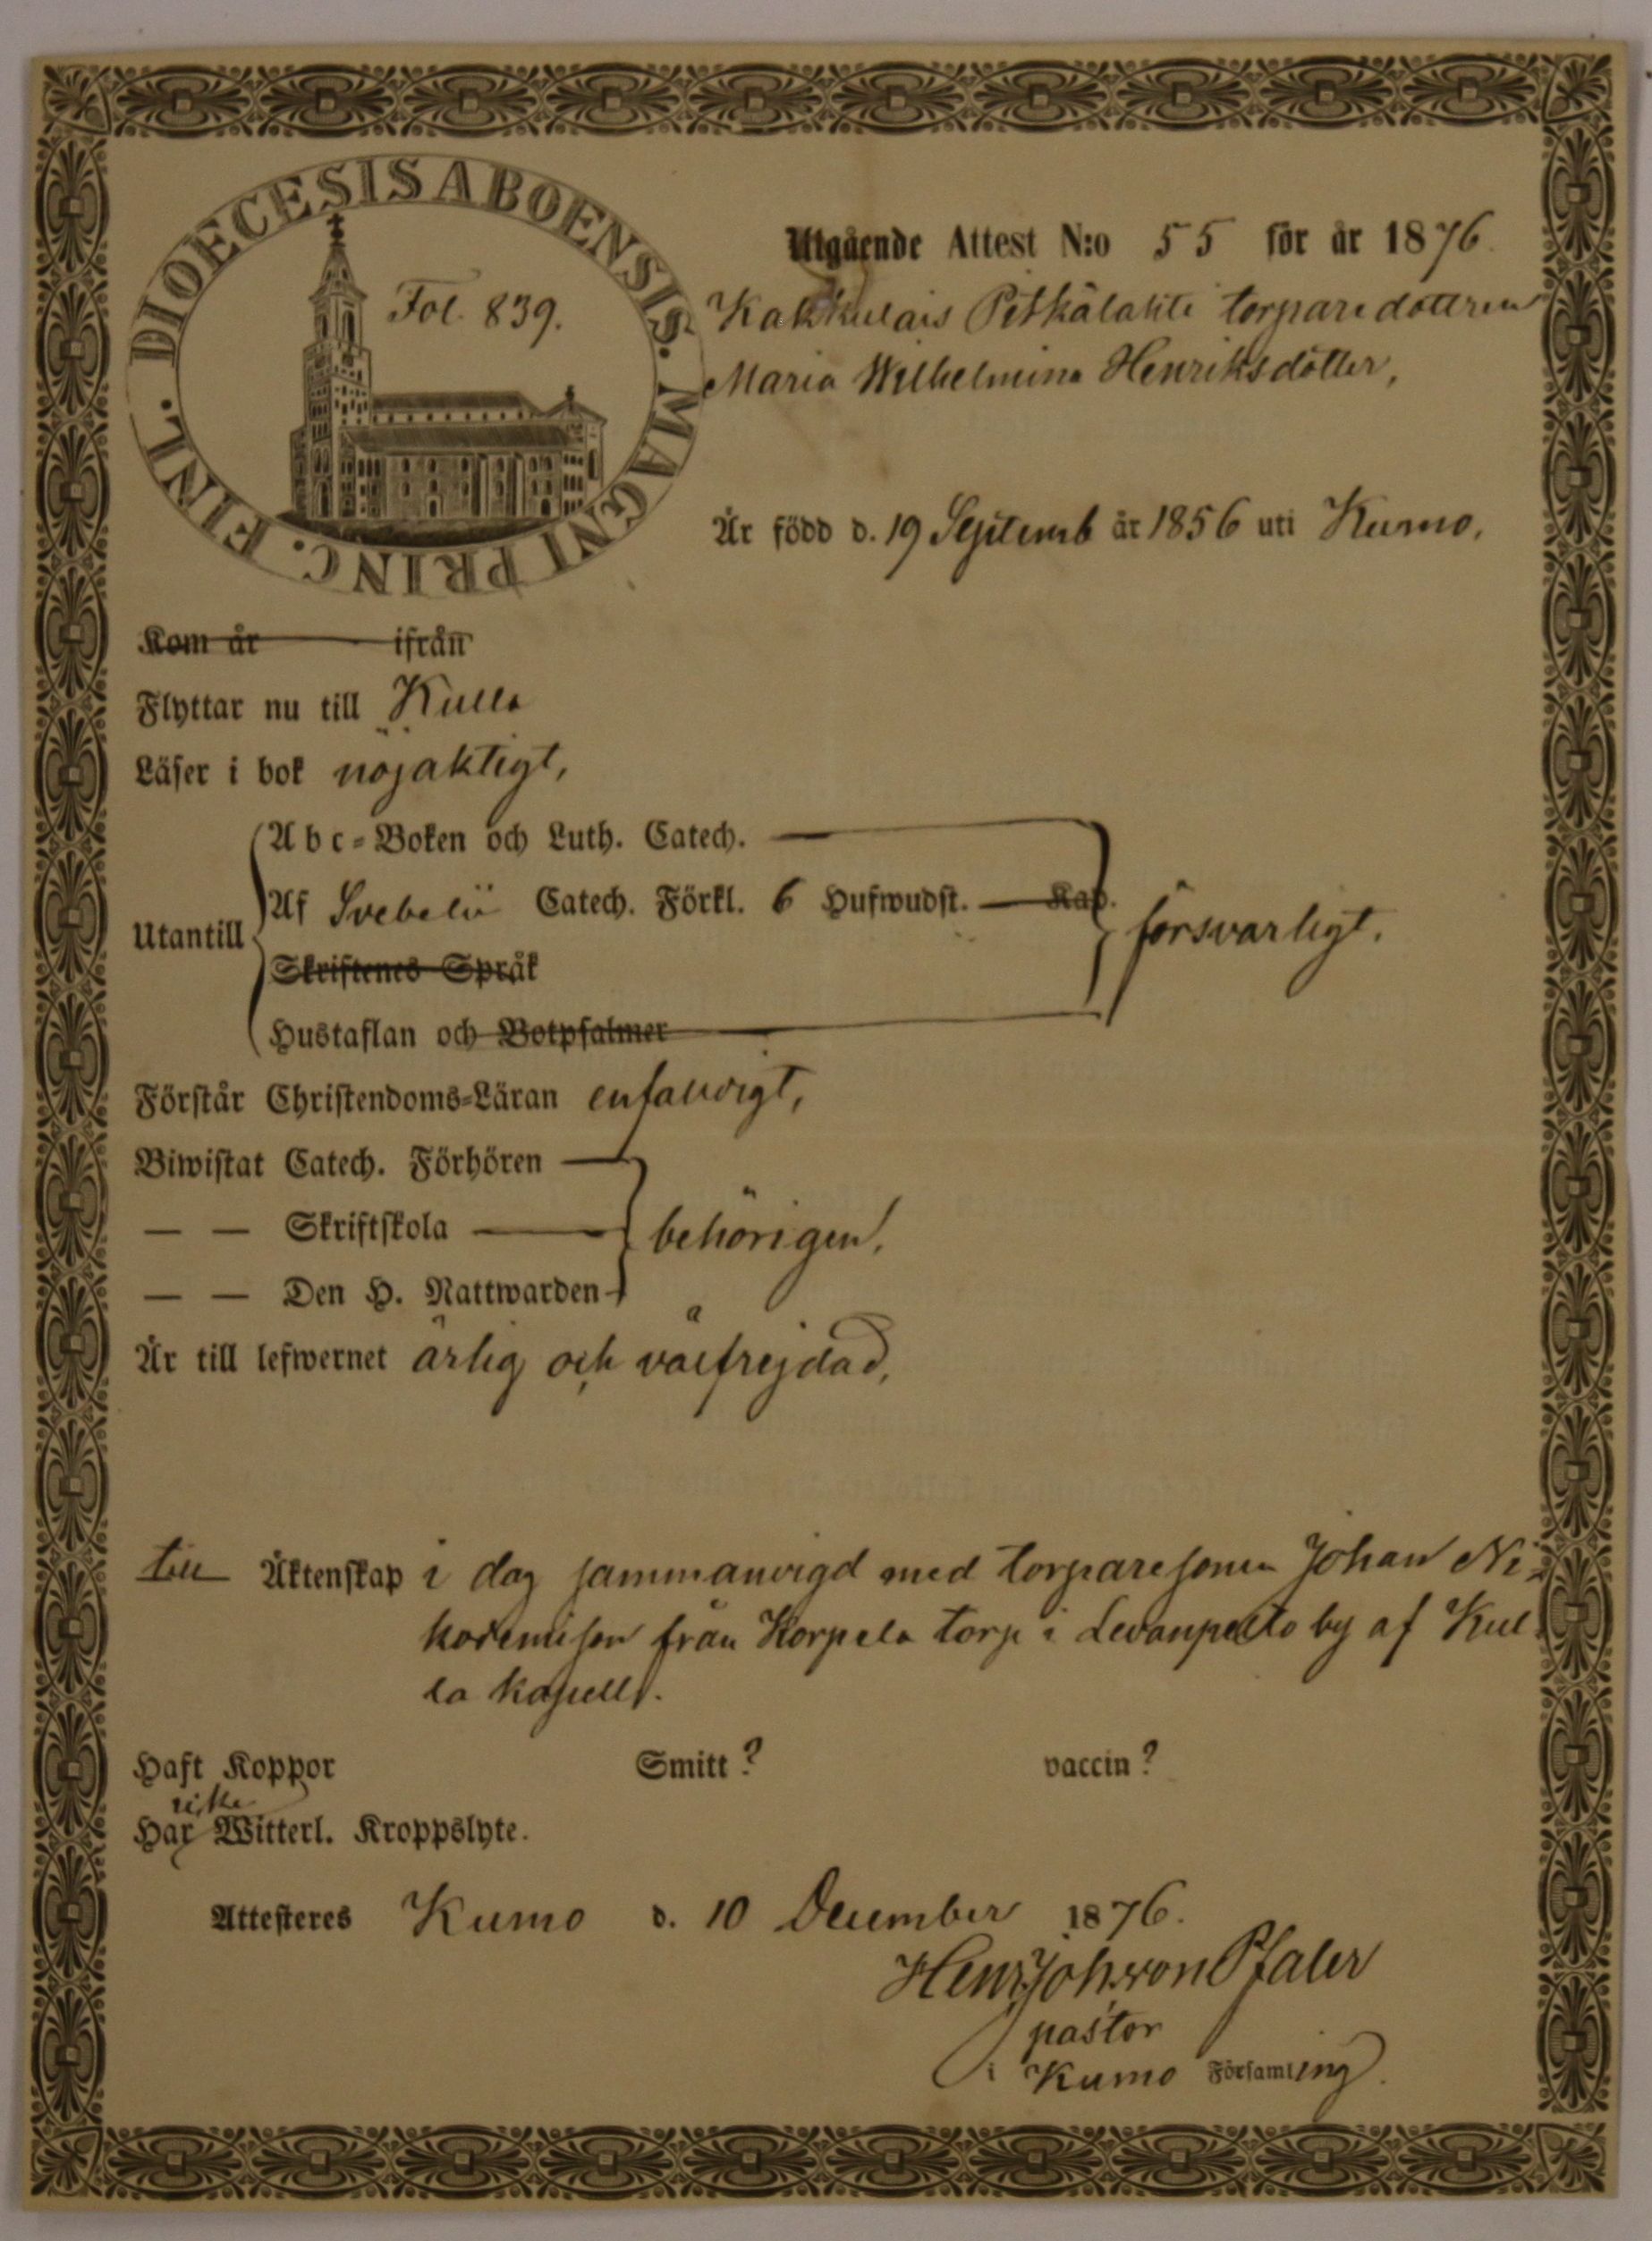 DIOECESIS ABOENSIS. MAGNI PRINC. FINL.
Fol. 839.
Utgående Attest N:o 55 för år 1876.
Kakkulais Pitkälahti torparedottren
Maria Wilhelmina Henriksdotter,
Är född d. 19 Septemb år 1856 uti Kumo,
Kom år ifrån
Flyttar nu till Kulla
Läser i bok nöjaktigt,
Utantill
Abc-Boken och Luth. Catech.
Af Svebelii Catech. Förkl. 6 Hufwudst. Kap.
Skriftenes Språk
Hustaflan och Botpsalmer
försvarligt.
Förstår Christendoms-Läran enfaldigt,
Biwistat Catech. Förhören
— — Skriftskola
— — Den H. Nattwarden
behörigen,
Är till lefwernet ärlig och välfrejdad,
till Äktenskap i dag sammanvigd med torparesonen Johan Ni-
kodemisson från Korpela torp i Levanpelto by af Kul-
la kapell.
Haft Koppor Smitt? vaccin?
icke
Har Witterl. Kroppslyte.
Attesteres Kumo d. 10 December 1876.
Henr. Joh. von Pfaler
pastor
i Kumo Församling.